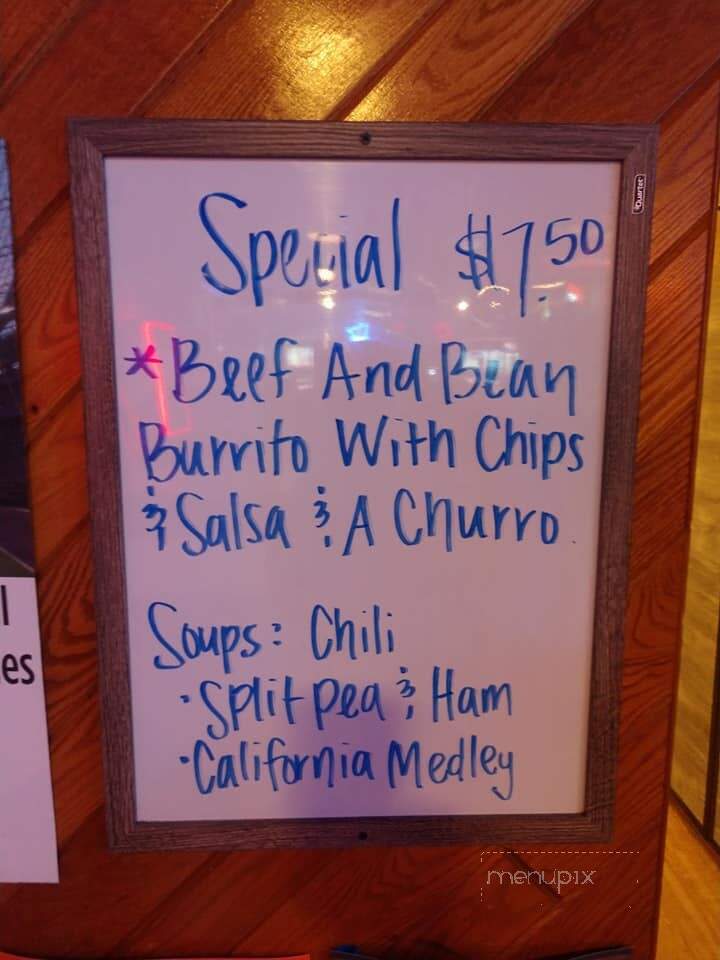 Special $7.50
*Beef And Bean
Burrito With Chips
& Salsa & A Churro.
Soups: Chili
·Split Pea & Ham
·California Medley
Quartet
l
es
menupix